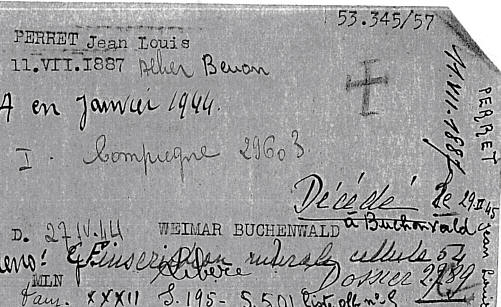 53.345/57
PERRET Jean Louis
11.VII.1887
A en Janvier 1944.
I - Compiegne 29603
Décédé le 29 II 45
à Buchenvald
D. 27 IV 44 WEIMAR BUCHENWALD
inscription murale cellule 52
MLN Libéré Dossier 2989
XXXII S.195- S.501
11.VII.1887
PERRET
Jean Louis